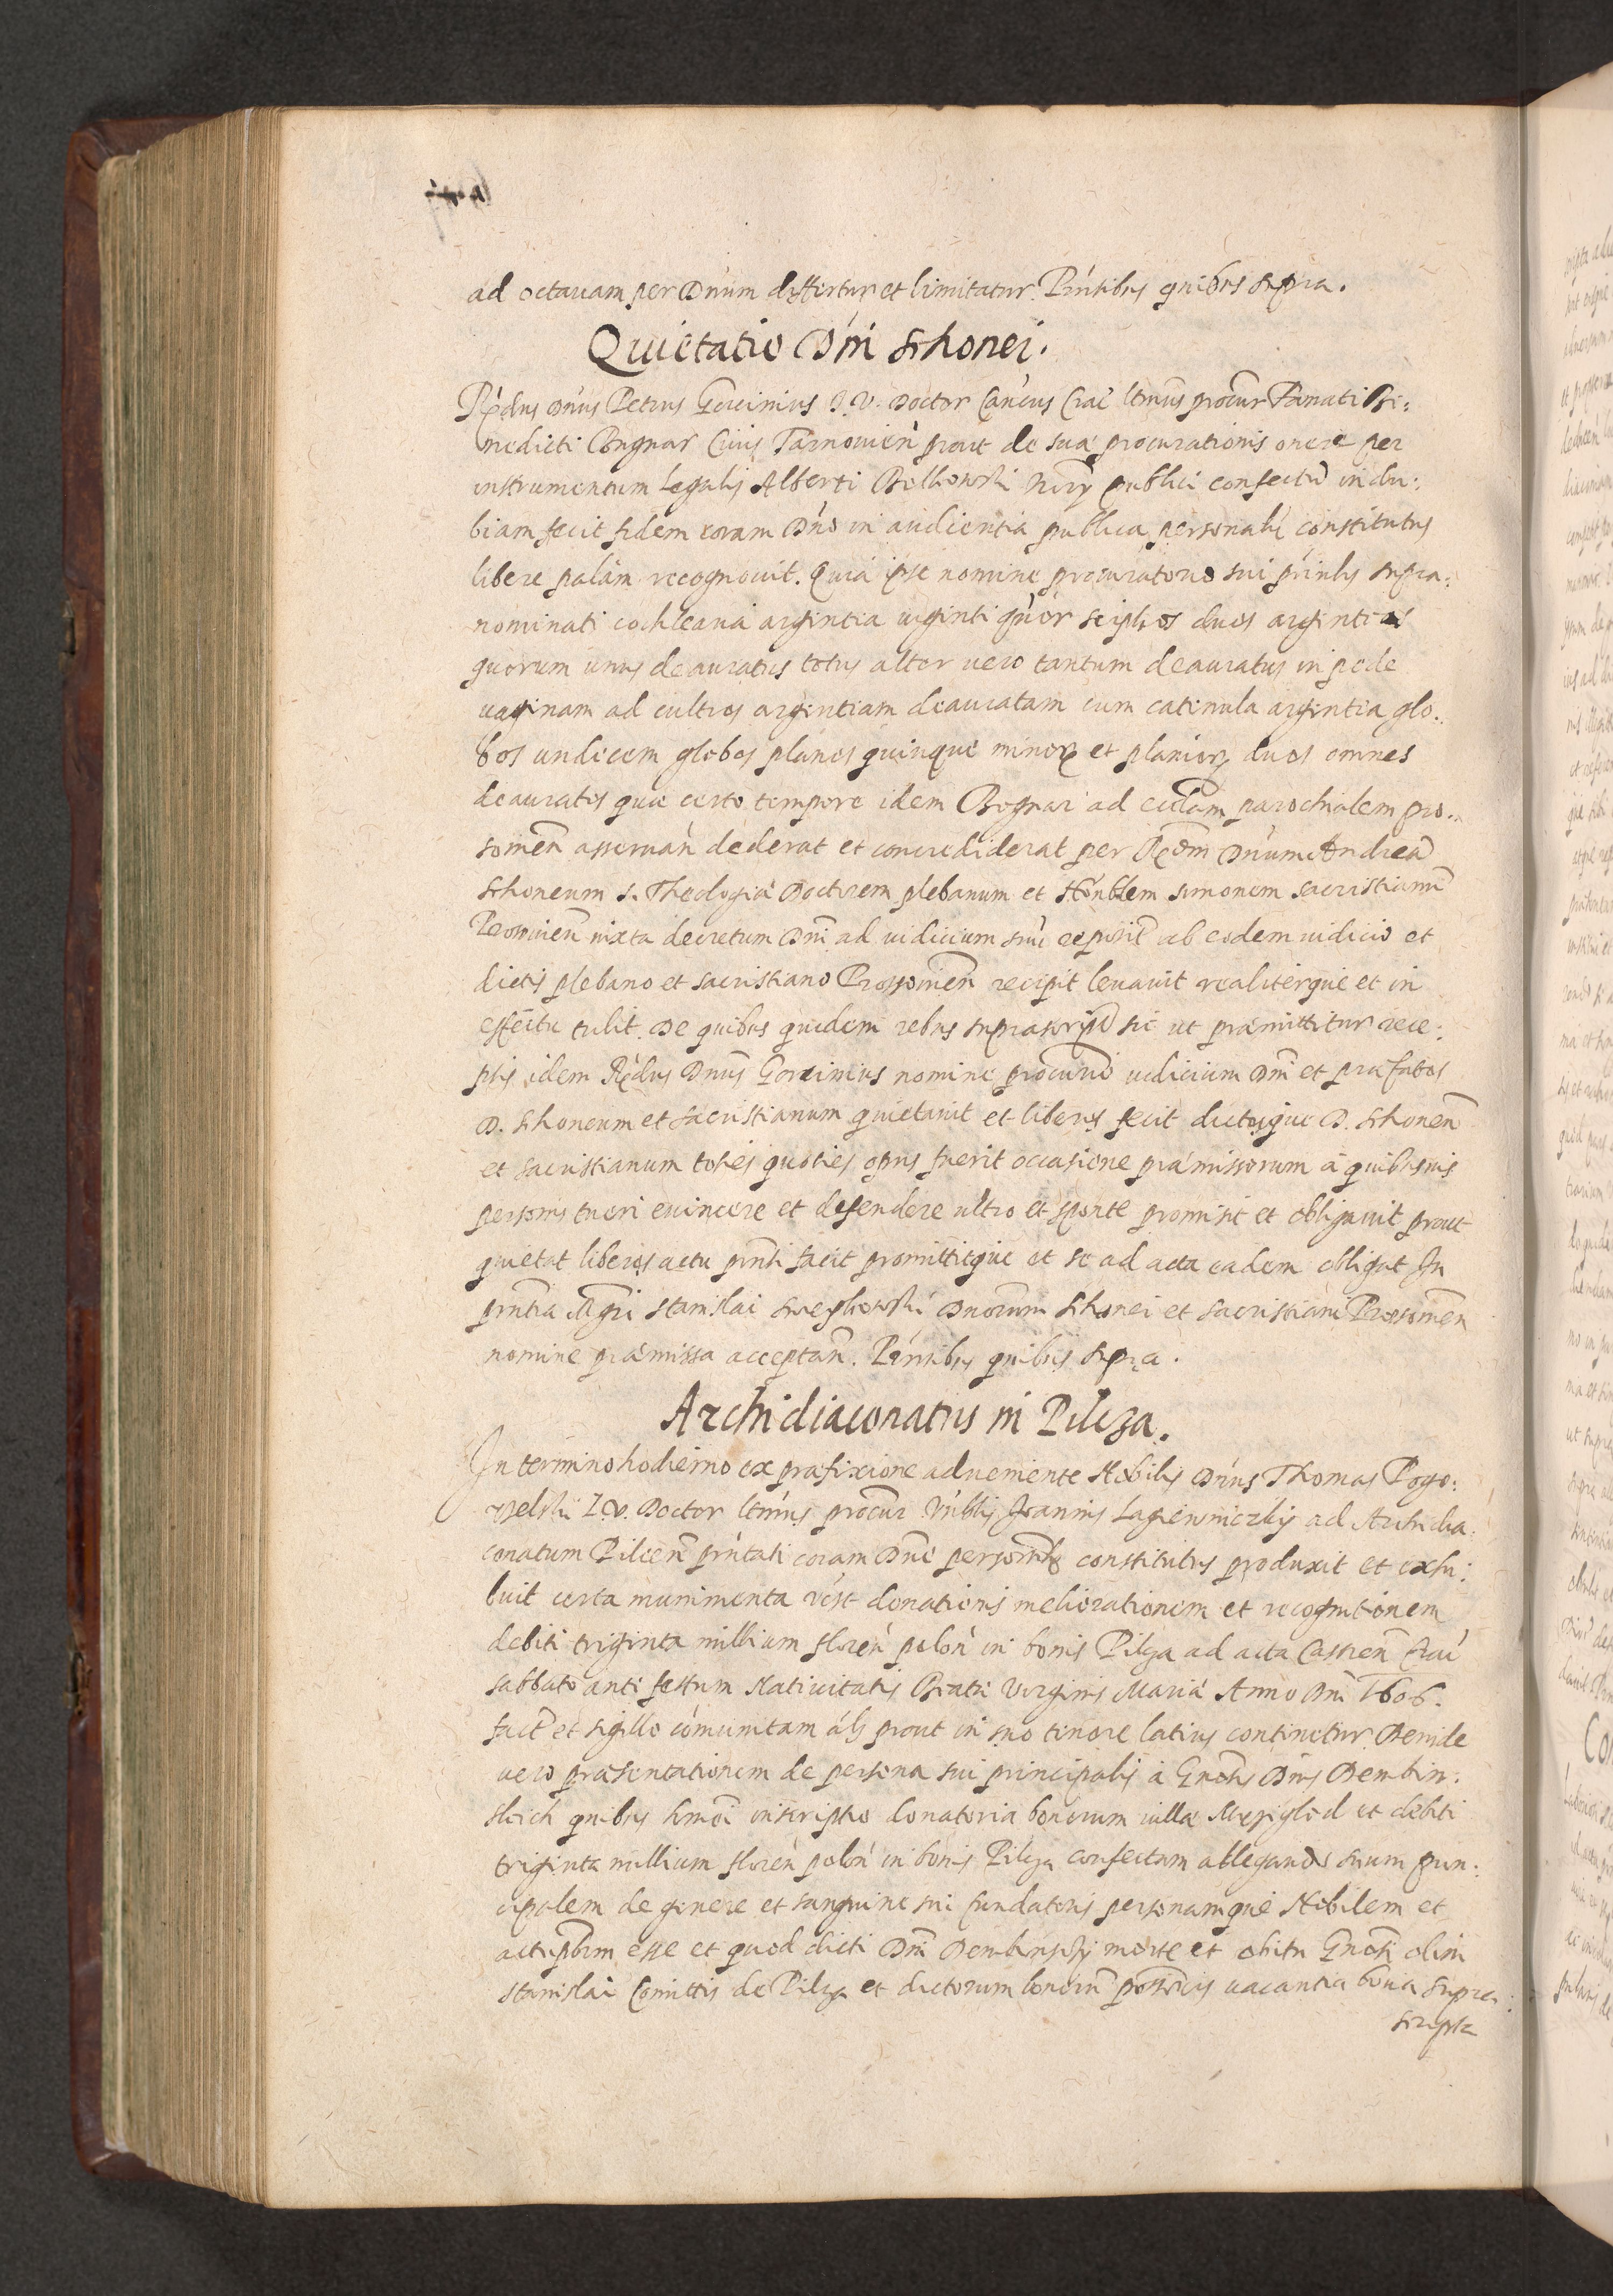 ad octauam per Dnum differtur et limitatur. Pñtibus quibus supra.
Quietatio Dñi Schonei.
Rñdus Dñus Petrus Gorcinius J. V. Doctor Cancus Crac ltmus procur Famati Be:
nedicti Bognar Ciuis Tarnouien prout de sua procurationis onere per
instrumentum legalis Alberti publici confectu indu:
biam fecit fidem coram Dño in audientia publica personalr constitutus
libere palam recognouit. Quia ipse nomine procuratorio sui prinlis supra:
nominati cochlearia argentia uiginti quor sciphos duos argenteos
quorum unus deauratus totus alter uero tantum deauratus in pede
uaginam ad cultros argentiam deauratam cum catenula argentia glo:
bos undecem globos planos quinque minor et planior duos omnes
deauratos quae certo tempore idem Bognar ad ecclam parochialem pro:
somen asseruan dederat et concrediderat per Rdm Dnum Andrea
Schoneum S. Theologiæ Doctorem plebanum et Honblem Simonem sacristianu
iuxta decretum Dni ad iudicium suu ab eodem iudicio et
dictis plebano et sacristiano Prossouien recepit leuauit realiterque et in
effectu tulit. De quibus quidem rebus suprascript sic ut præmittitur rece:
ptis idem Rdus Dnus Gorcinius nomine procurio iudicium Dni et præfatos
D. Schoneum et sacristianum quietauit et liberos fecit dictosque D. Schoneu
et sacristianum toties quoties opus fuerit occasione præmissorum à quibusuis
personis tueri euincere et defendere ultro et sponte promisit et obligauit prout
quietat liberos actu pnti facit promittitque et se ad acta eadem obligat In
pñtia Mgri Stanislai Dnorum Schonei et sacristiani Prossouien
nomine præmissa acceptan. Pñtibus quibus supra.
Archidiaconatus in Pilcza.
In termino hodierno ex præfixione adueniente Nobilis Dñus Thomas Pogo:
rzelski J. V. Doctor ltmus procur Nobilis Joannis Lagiewniczky ad Archidia:
conatum Pilcen pñtati coram Dño personlr constitutus produxit et exhi:
buit certa munimenta donationis meliorationem et recognitionem
debiti triginta millium floren polon in bonis Pilcza ad acta Castren Crac
sabbato ante festum Natiuitatis Beatæ Virginis Mariæ Anno Dni 1606.
fact et sigillo comunitam als prout in suo tenore latius continetur. Deinde
uero præsentationem de persona sui principalis à Gnosis Dnis Dembin:
skich quibus hmoi inscriptio donatoria bonorum uillæ et debiti
triginta millium floren polon in bonis Pilcza confectam allegando suum prin:
cipalem de genere et sanguine sui fundatoris personamque Nobilem et
esse et quod dicti Dni Dembinskij morte et obitu Gnosi olim
Stanislai Comitis de Pilcza et dictorum bonorum uacantia bona supra:
scripta